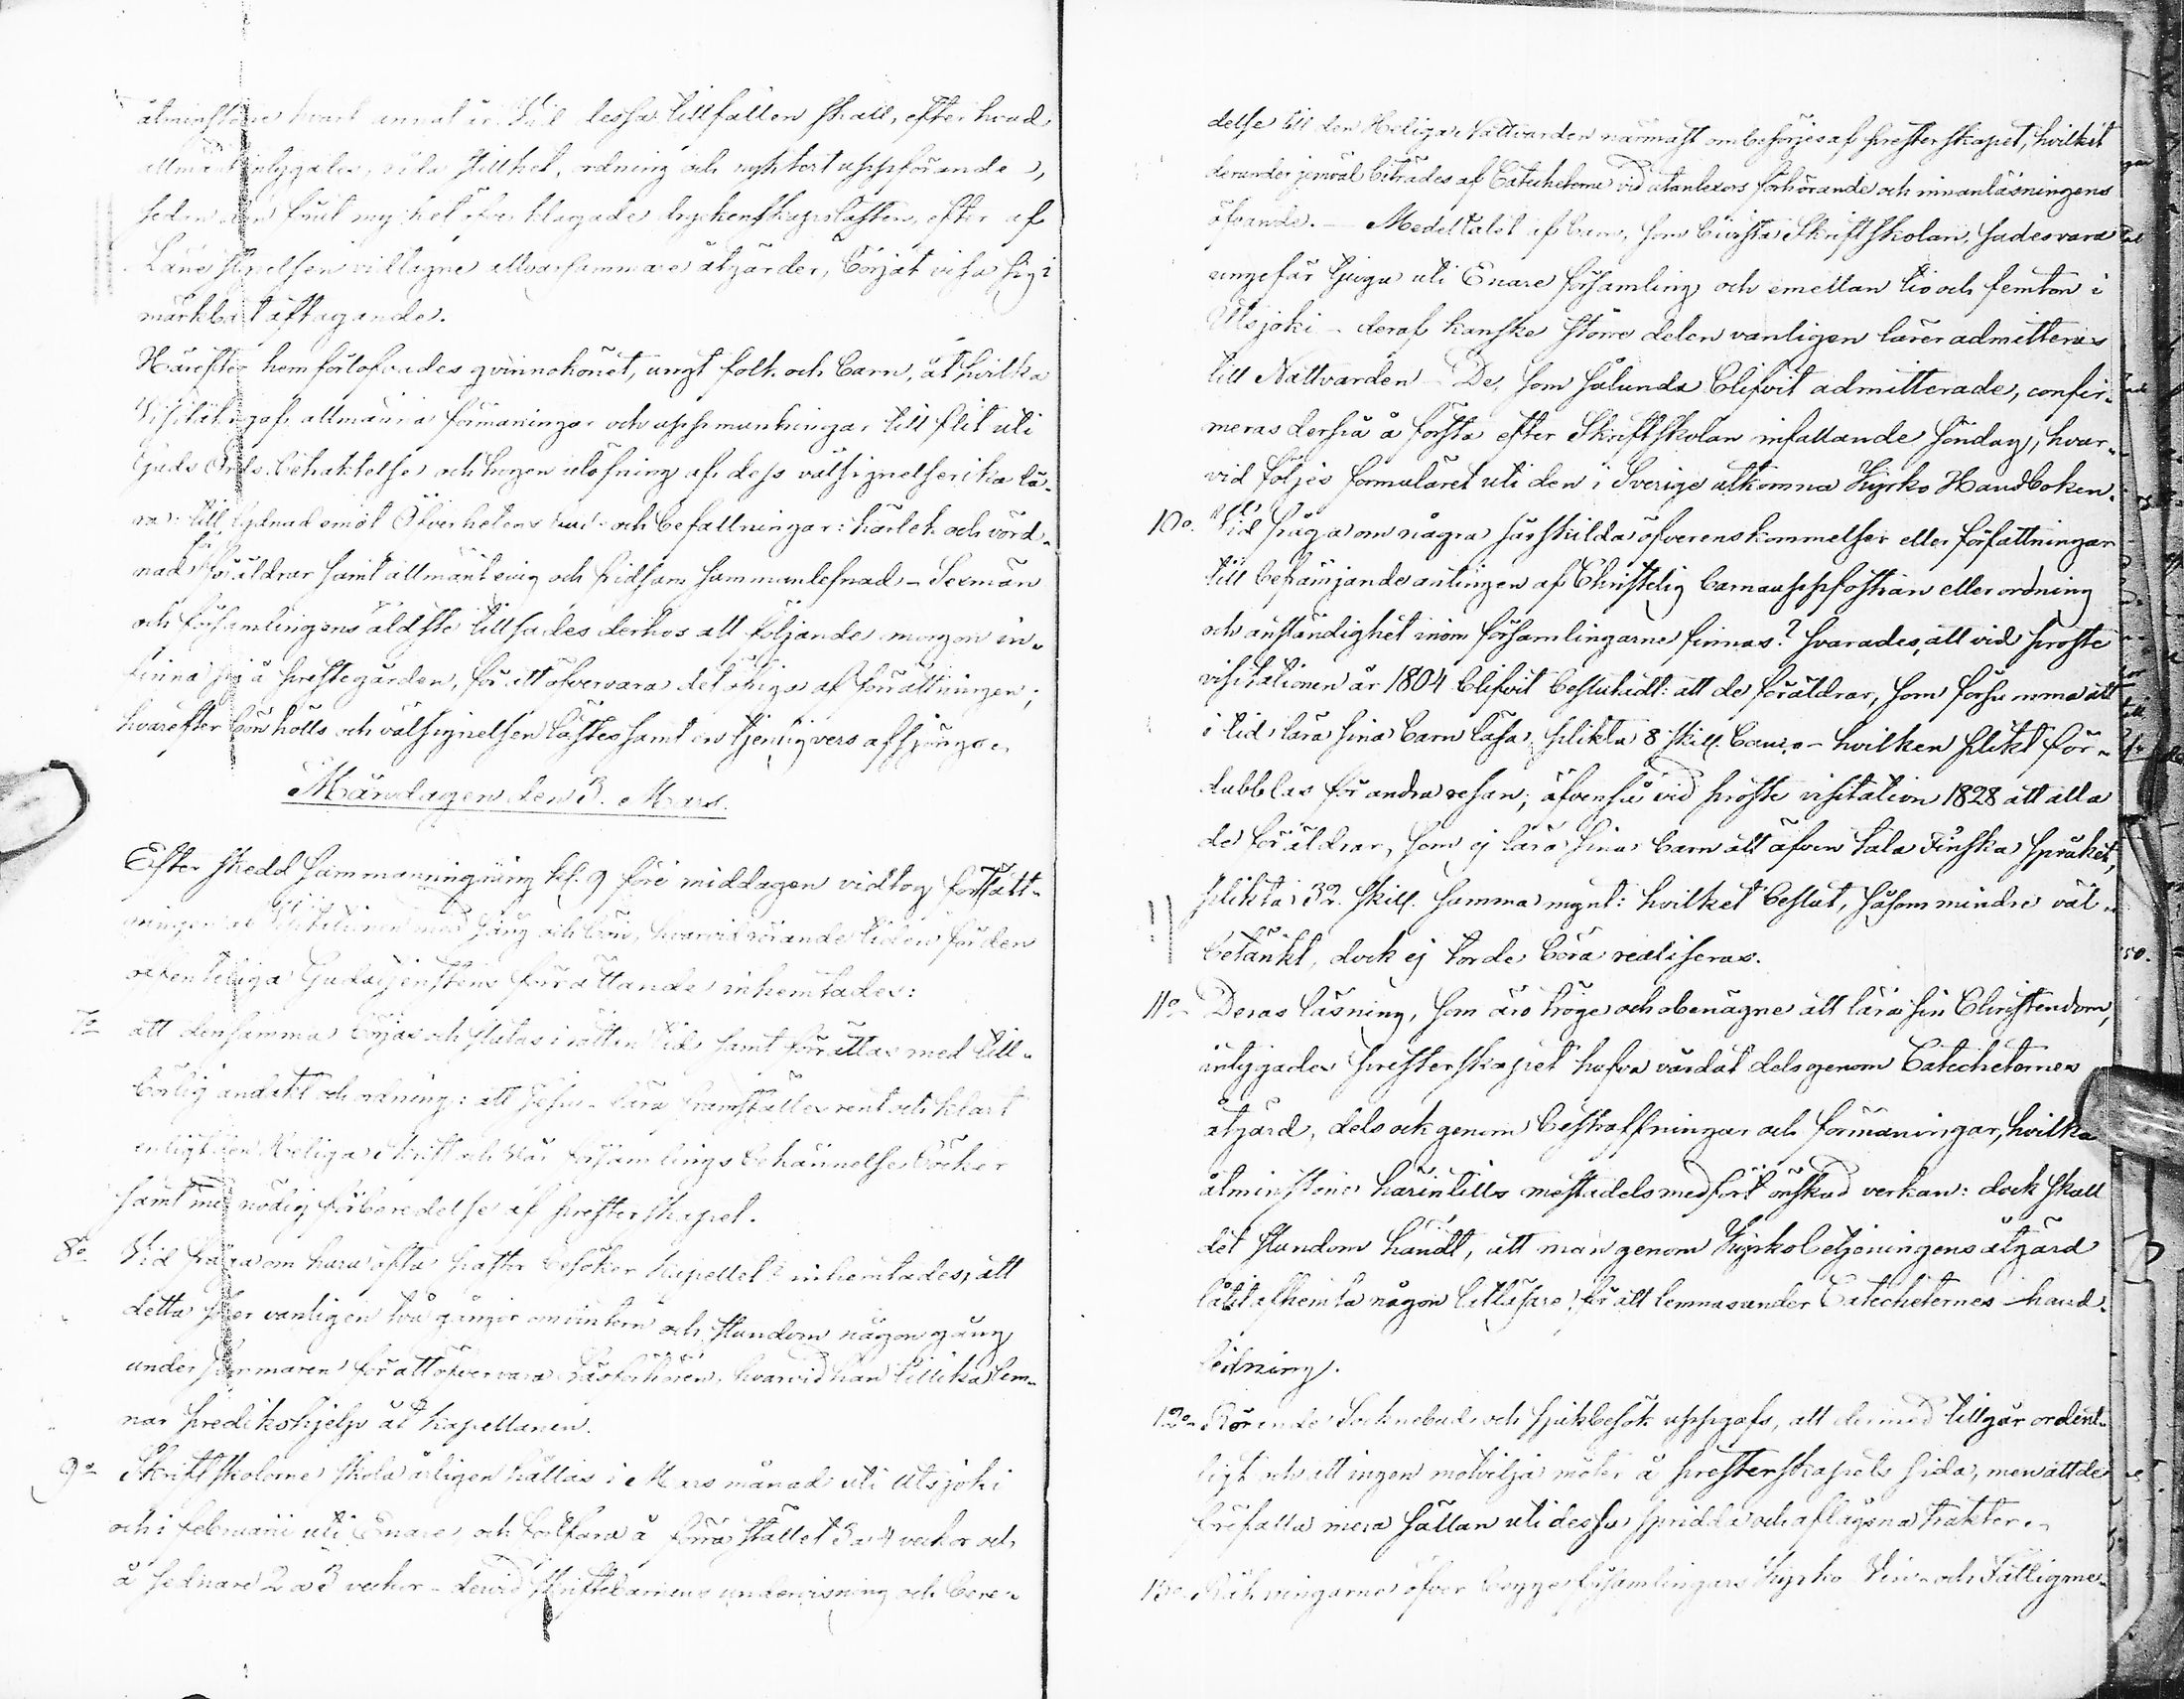 åtminstone hvart annat år. Vid dessa tillfällen skall, efter hvad
allmänt intygades, råda stillhet, ordning och nyktert uppförande,
sedan den förut mycket öfverklagade dryckenskapslasten, efter af
Läne styrelsen vidtagne allvarsammare åtgärder, börjat visa sig i
märkbart aftagande.
Härefter hemförlofvades qvinnokönet, ungt folk och barn, åt hvilka
Visitator gaf allmänna förmaningar och uppmuntringar till flit uti
Guds Ords betraktelse och trogen utöfning af dess välsignelserika lä-
ra: till lydnad emot Öfverhetens bud och befallningar: kärlek och vörd-
nad för föräldrar samt allmänt enig och fridsam sammanlefnad - Sexmän
och församlingens äldste tillsades derhos att följande morgon in-
finna sig å prestegården, för att öfvervara det öfriga af förrättningen;
hvarefter bön hölls och välsignelsen lästes samt en tjenlig vers afsjöngs.
Måndagen den 3. Mars.
Efter skedd sammanringning kl. 9 före middagen vidtog fortsätt-
ningen af Visitationen med sång och bön, hvarvid rörande tiden för den
offenteliga Gudstjenstens förrättande inhemtades:
7o att densamma börjas och slutas i rättan tid samt förrättas med till-
börlig andakt och ordning: att Jesu lära framställes rent och klart
enligt den Heliga Skrift och vår församlings bekännelse böcker
samt med nödig förberedelse af presterskapet.
8o Vid fråga om huru ofta pastor besöker kapellet? inhemtades, att
detta sker vanligen två gånger om vintern och stundom någon gång
under sommaren för att öfvervara läsförhören, hvarvid han tillika lem-
nar predikohjelp åt kapellanen.
9o Skriftskolorne skola årligen hållas i Mars månad uti Utsjoki
och i februarii uti Enare, och fortfara å förra stället 3 a 4 veckor och
å sednare 2 a 3 veckor - dervid Skriftebarnens undervisning och bere-
delse till den Heliga Nattvarden närmast ombesörjes af presterskapet, hvilket
derunder jemväl biträdes af Catecheterne vid utanlexors förhörande och innanläsningens
öfvande. - Medeltalet af barn, som bevista Skriftskolan, sades vara
ungefär tjugu uti Enare församling och emellan tio och femton i
Utsjoki - deraf kanske större delen vanligen lärer admitteras
till Nattvarden - De, som sålunda blifvit admitterade, confir-
meras derpå å första efter Skriftskolan infallande söndag, hvar-
vid följes formuläret uti den i Sverige utkomna Kyrko Handboken.
10o Vid fråga om några särskilda öfverenskommelser eller författningar
till befrämjande antingen af Christelig barnauppfostran eller ordning
och anständighet inom församlingarne finnas? svarades, att vid proste
visitationen år 1804 blifvit beslutadt: att de föräldrar, som försumma att
i tid lära sina barn läsa, plikta 8 skill. banco - hvilken plikt för-
dubblas för andra resan; äfvenså vid proste visitation 1828 att alla
de föräldrar, som ej lära sina barn att äfven tala Finska språket,
plikta 32 skill. samma mynt: hvilket beslut, såsom mindre väl
betänkt, dock ej torde böra realiseras.
11o Deras läsning, som äro tröge och obenägne att lära sin Christendom,
intygades presterskapet hafva vårdat dels genom Catecheternes
åtgärd, dels ock genom bestraffningar och förmaningar, hvilka
åtminstone härintills mestadels medfört önskad verkan: dock skall
det stundom händt, att man genom Kyrkobetjeningens åtgärd
låtit afhemta någon lättläsare, för att lemnas under Catecheternes hand-
ledning.
12o Rörande Socknebud och sjukbesök uppgafs, att dermed tillgår ordent-
ligt och att ingen motvilja möter å presterskapets sida, men att de
förefalla mera sällan uti dessa spridda och aflägsna trakter.
13o Räkningarne öfver begge församlingars Kyrko Vin- och Fattigme-